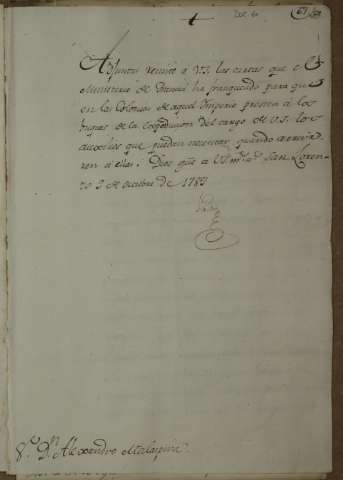 Adjuntas remito a V.S. las cartas que el
Ministerio de Francia ha franqueado para que
en las Colonias de aquel Imperio presten a los
buques de la Expedicion del cargo de V.S. los
auxilios que puedan necesitar quando arriva
ren a ellas. Dios gue a V.S. m.s a.s San Loren-
zo 3 de octubre de 1789
S.or D.n Alexandro Malaspina.